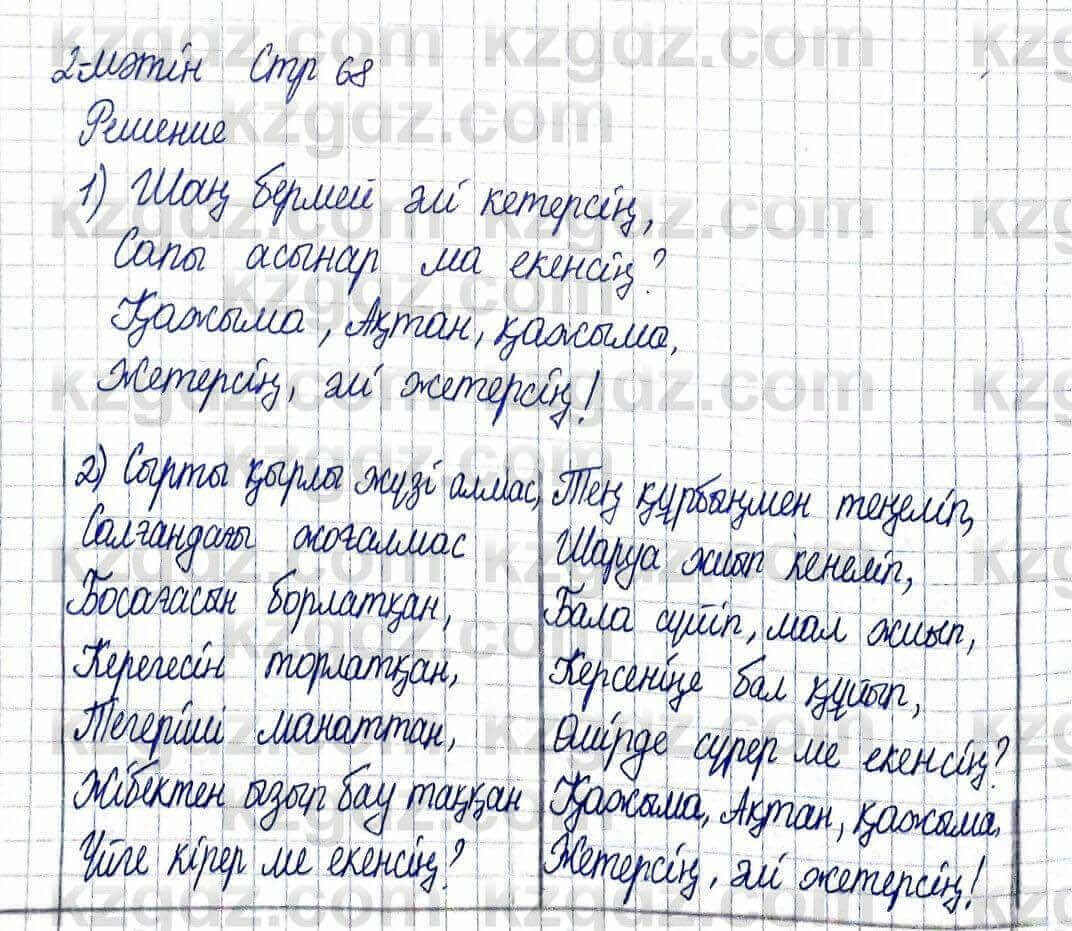 2-мәтін Стр 68
Решение
1) Шаң бермей әлі кетерсің,
Сапы асынар ма екенсің?
Қажыма, Ақтан, қажыма,
Жетерсің, әлі жетерсің!
2) Сырты қырлы жүзі алмас,
Салғандағы жоғалмас
Босағасын борлатқан,
Керегесін торлатқан,
Тегеріші манаттан,
Жібектен ызып бау таққан
Үйге кірер ме екенсің?
Тең құрбыңмен теңеліп,
Шаруа жиып кенеліп,
Бала сүйіп, мал жиып,
Керсеніңе бал құйып,
Өмірде сүрер ме екенсің?
Қажыма, Ақтан, қажыма,
Жетерсің, әлі жетерсің!
kzgdz.com